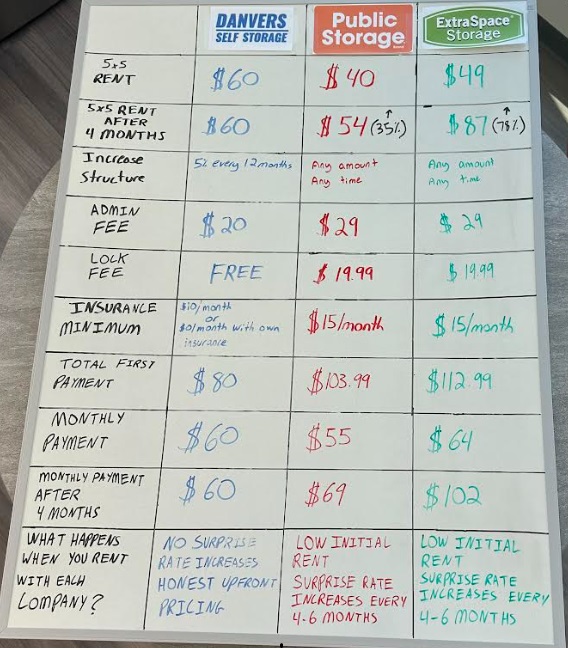 DANVERS
SELF STORAGE
Public
Storage
ExtraSpace®
Storage
5x5
RENT
$60
$40
$49
5x5 RENT
AFTER
4 MONTHS
$60
$54 (35%) ↑
$87 (78%) ↑
Increase
Structure
5% every 12 months
Any amount
Any time
Any amount
Any time
ADMIN
FEE
$20
$29
$29
LOCK
FEE
FREE
$19.99
$19.99
INSURANCE
MINIMUM
$10/month
or
$0/month with own
insurance
$15/month
$15/month
TOTAL FIRST
PAYMENT
$80
$103.99
$112.99
MONTHLY
PAYMENT
$60
$55
$64
MONTHLY PAYMENT
AFTER
4 MONTHS
$60
$69
$102
WHAT HAPPENS
WHEN YOU RENT
WITH EACH
COMPANY?
NO SURPRISE
RATE INCREASES
HONEST UPFRONT
PRICING
LOW INITIAL
RENT
SURPRISE RATE
INCREASES EVERY
4-6 MONTHS
LOW INITIAL
RENT
SURPRISE RATE
INCREASES EVERY
4-6 MONTHS